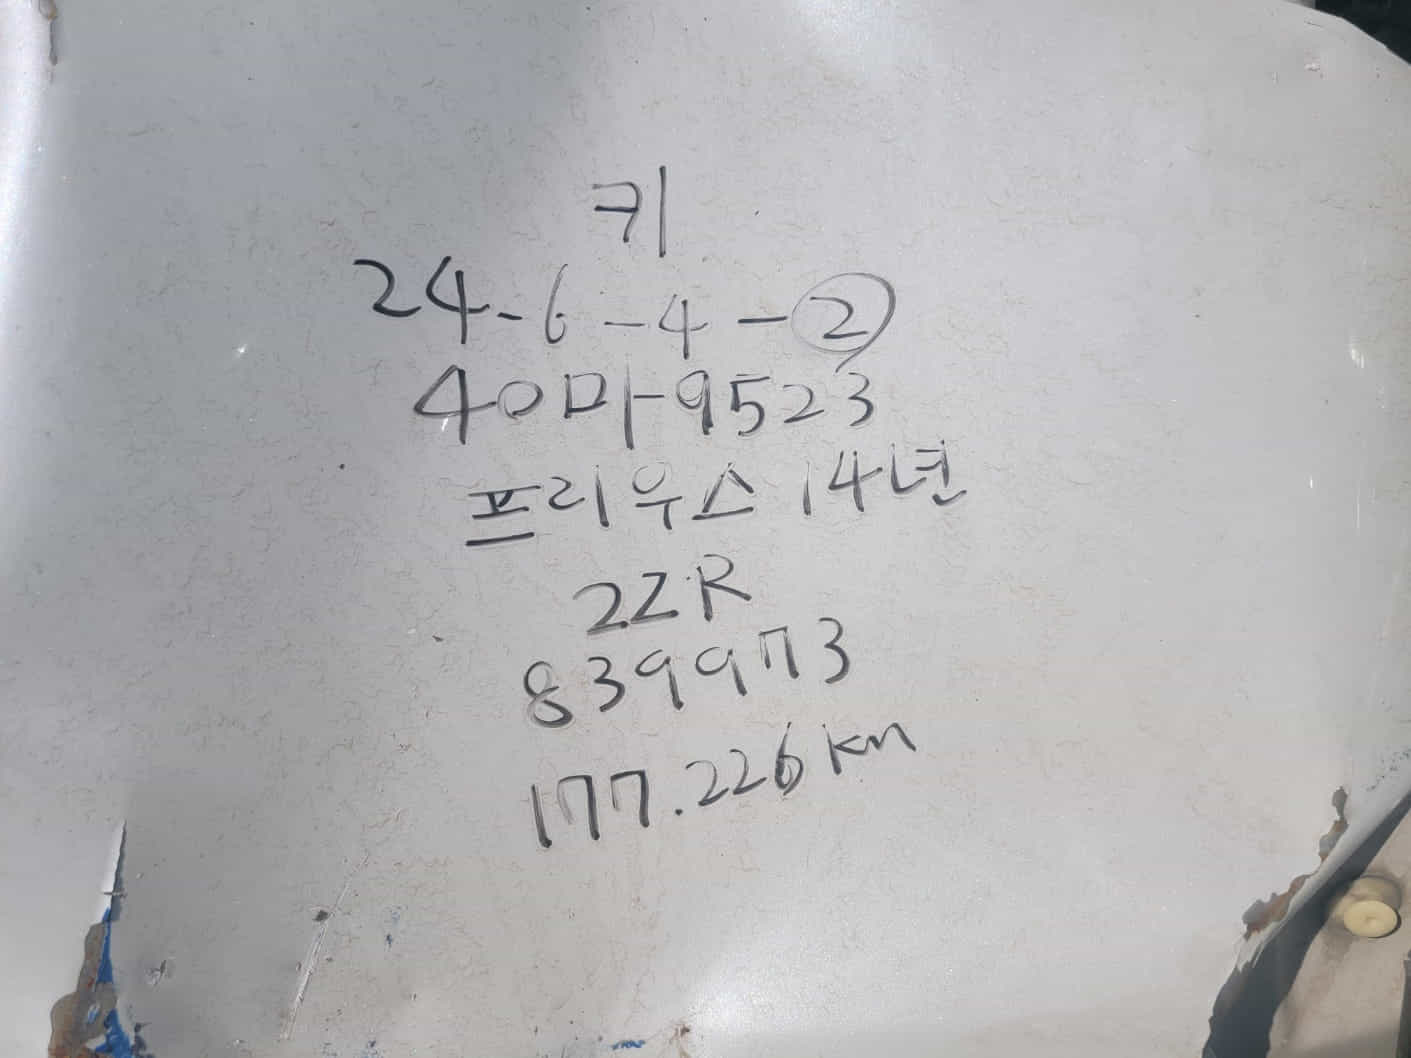 키
24-6-4-②
40마9523
프리우스 14년
2ZR
839973
177.226km